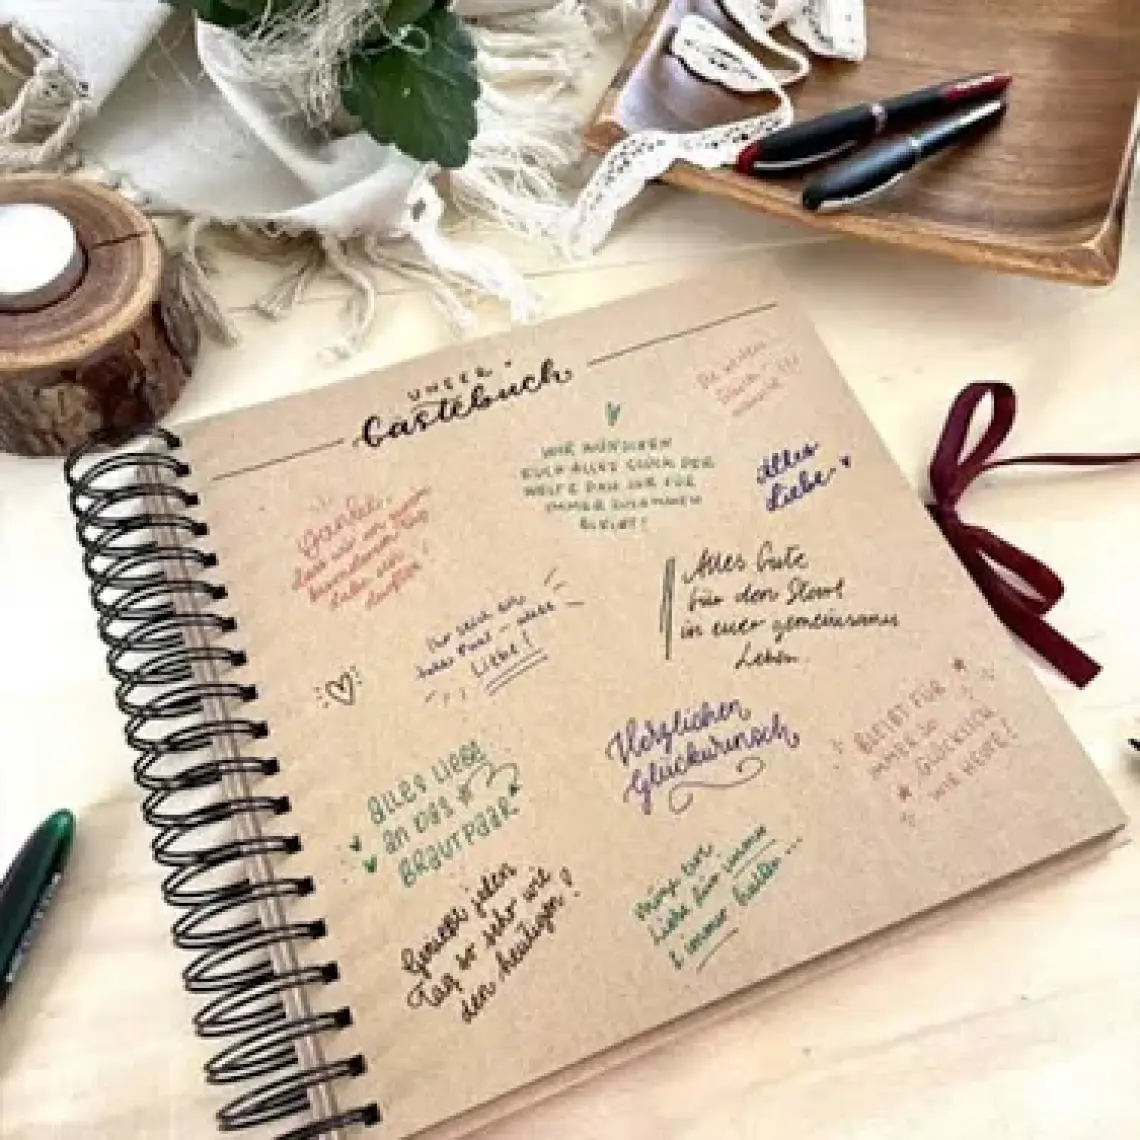 UNSER
Gästebuch
Danke,
dass wir an eurem
besonderen Tag
dabei sein
dürfen!
WIR WÜNSCHEN
EUCH ALLES GLÜCK DER
WELT & DASS IHR FÜR
IMMER ZUSAMMEN
BLEIBT!
Alles
Liebe
Alles Gute
für den Start
in euer gemeinsames
Leben.
Liebe!
Herzlichen
Glückwunsch
BLEIBT FÜR
IMMER SO
GLÜCKLICH
WIE HEUTE!
ALLES LIEBE
AN DAS
BRAUTPAAR
Genießt jeden
Tag so sehr wie
den heutigen!
Liebe für immer
& immer halten...